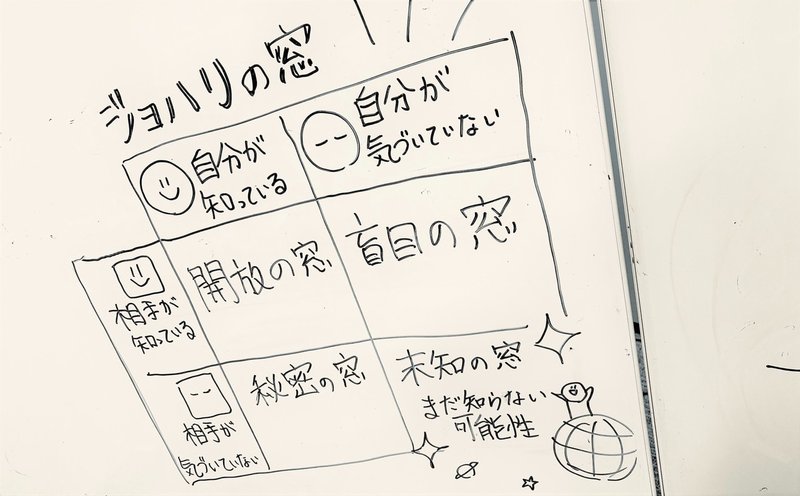 ジョハリの窓
自分が
知っている
自分が
気づいていない
相手が
知っている
開放の窓
盲目の窓
相手が
気づいていない
秘密の窓
未知の窓
まだ知らない
可能性